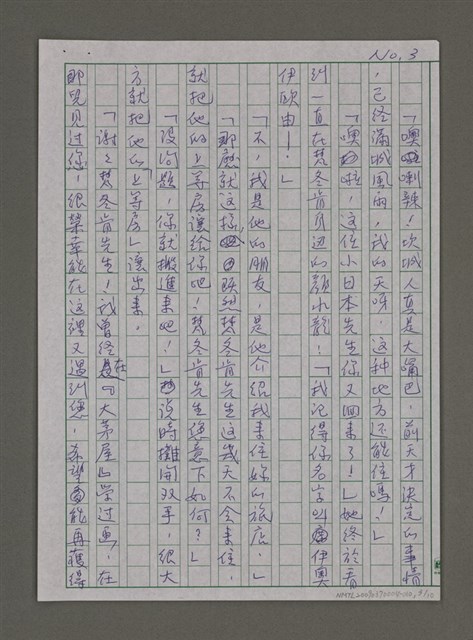 No. 3
「噢啦喇辣!坎城人真是大嘴巴,前天才決定的事情
,已經滿城風雨,我的天呀,這種地方还能住嗎!」
「噢啦啦,這位小日本先生你又回來了!」她終於看
到一直在梵冬肯身边的顏水龍!「我記得你名字叫伊奧
伊歐由!」
「不,我是他的朋友,是他介紹我來住妳的旅店。」
「那麽就這樣,既然梵冬肯先生這幾天不会來住,
就把他的上等房讓給你吧!梵冬肯先生您意下如何?」
「沒问題,你就搬進來吧!」說時攤開双手,很大
方就把他的「上等房」讓出來。
「謝々梵冬肯先生!我曾經在『大茅屋』学过画,在
那兒見过您,很榮幸能在這裡又遇到您,希望能再獲得